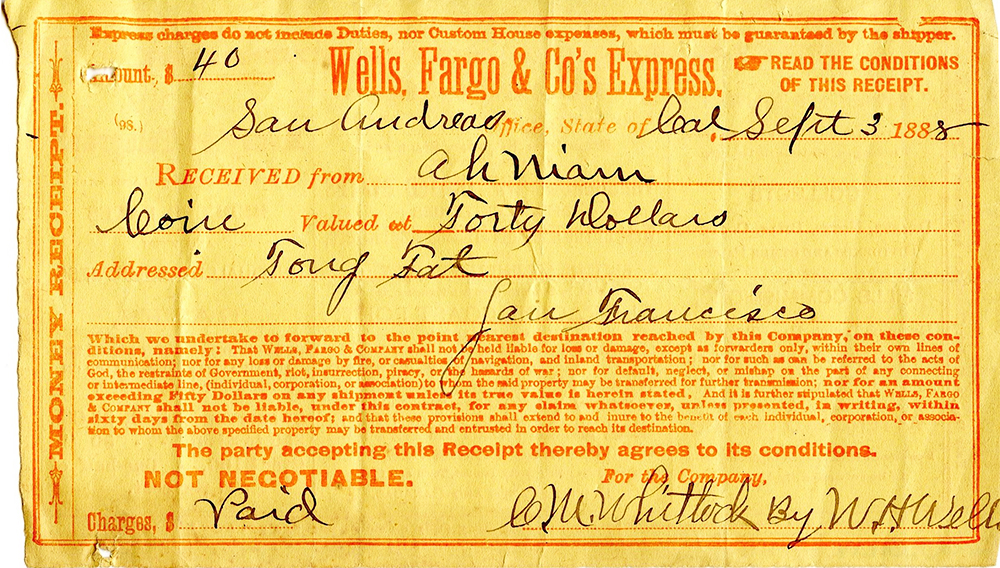 Express charges do not include Duties, nor Custom House expenses, which must be guaranteed by the shipper.
Amount, $ 40
Wells, Fargo & Co's Express.
READ THE CONDITIONS
OF THIS RECEIPT.
(98.) San Andreas Office, State of Cal Sept 3 1888
RECEIVED from Ah Niam
Coin Valued at Forty Dollars
Addressed Tong Fat
San Francisco
Which we undertake to forward to the point nearest destination reached by this Company, on these con-
ditions, namely: That WELLS, FARGO & COMPANY shall not be held liable for loss or damage, except as forwarders only, within their own lines of
communication; nor for any loss or damage by fire, or casualties of navigation, and inland transportation; nor for such as can be referred to the acts of
God, the restraints of Government, riot, insurrection, piracy, or the hazards of war; nor for default, neglect, or mishap on the part of any connecting
or intermediate line, (individual, corporation, or association) to whom the said property may be transferred for further transmission; nor for an amount
exceeding Fifty Dollars on any shipment unless its true value is herein stated. And it is further stipulated that WELLS, FARGO
& COMPANY shall not be liable, under this contract, for any claim whatsoever, unless presented, in writing, within
sixty days from the date hereof; and that these provisions shall extend to and inure to the benefit of each individual, corporation, or associa-
tion to whom the above specified property may be transferred and entrusted in order to reach its destination.
The party accepting this Receipt thereby agrees to its conditions.
NOT NEGOTIABLE.
For the Company,
Charges, $ Paid
C. M. Whitlock By W. H. Wells
MONEY RECEIPT.